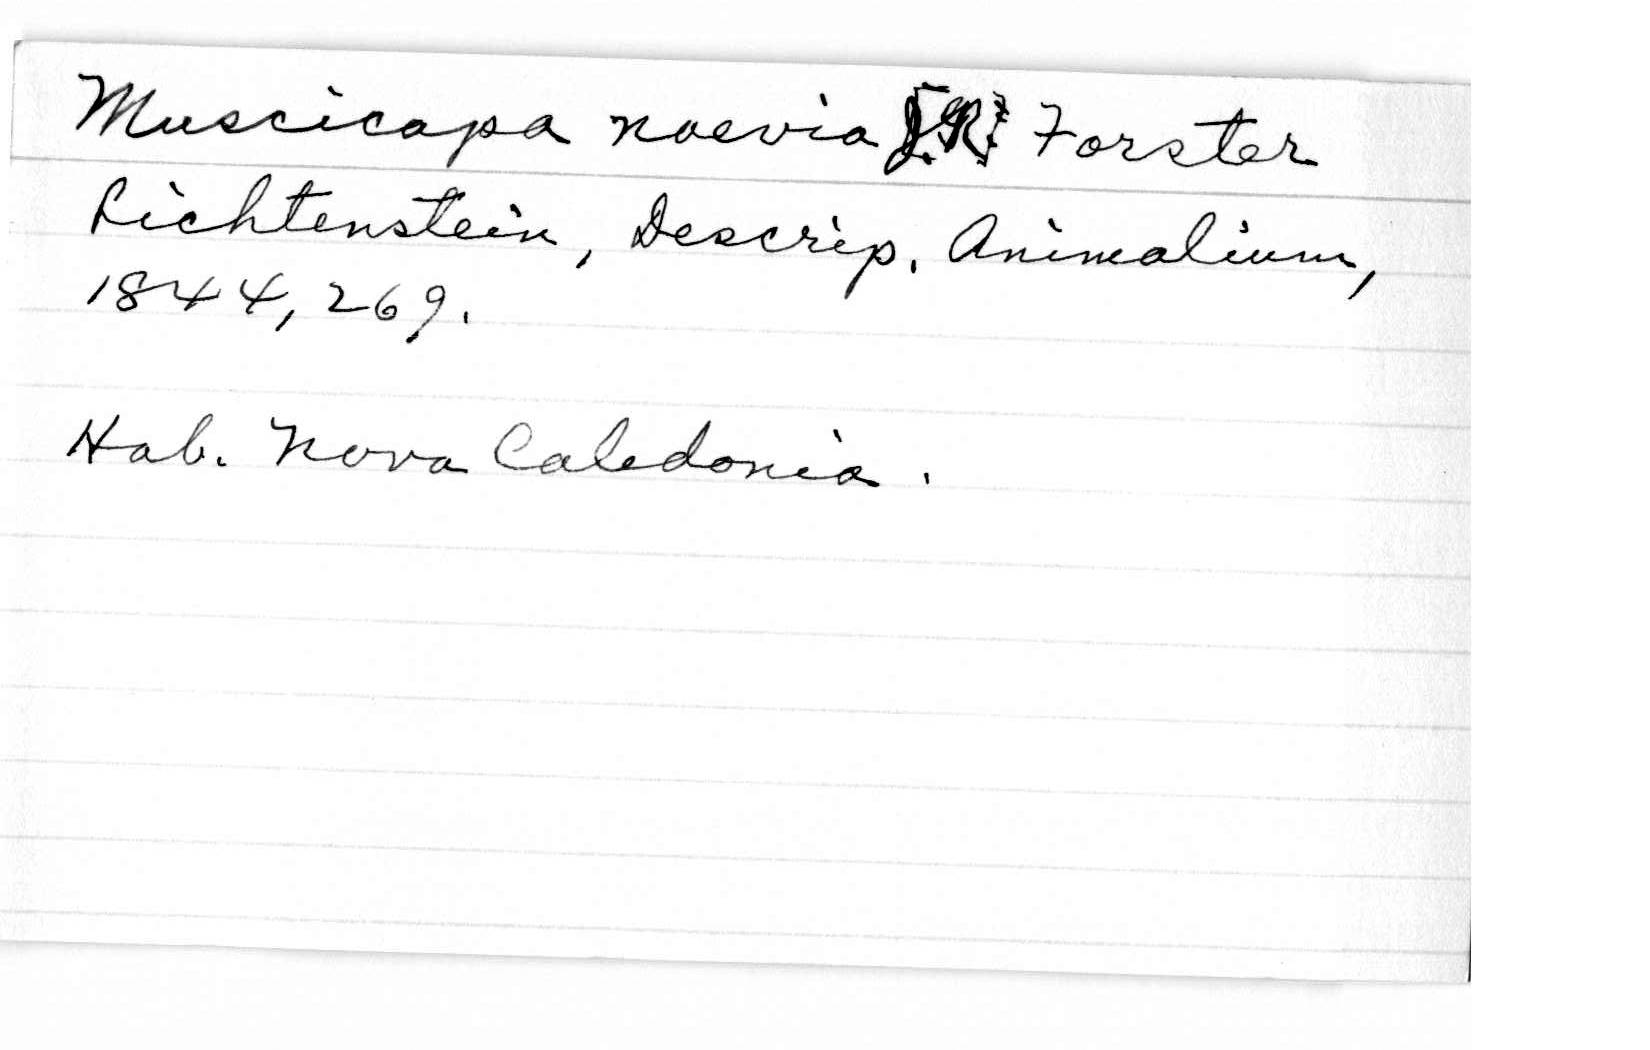 Muscicapa naevia [J.R.] Forster
Lichtenstein, Descrip. Animalium,
1844, 269.
Hab. Nova Caledonia.